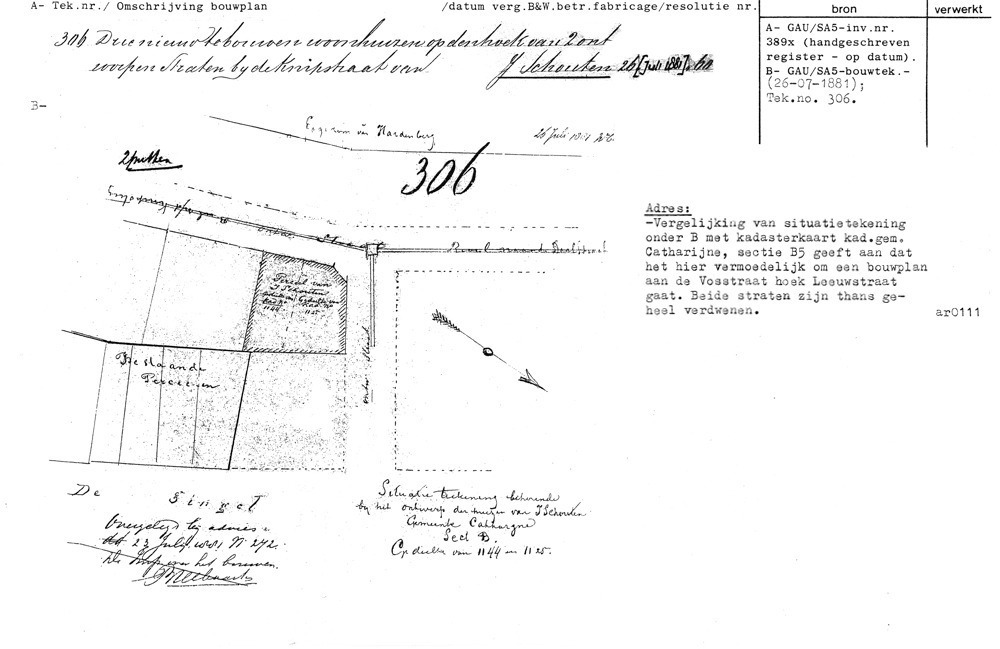 A- Tek.nr./ Omschrijving bouwplan /datum verg.B&W.betr.fabricage/resolutie nr.
bron verwerkt
306 Drie nieuw te bouwen woonhuizen op den hoek van 2 ont
worpen Straten by de Knipstraat van J Schouten 26 [Juli 1881]
A- GAU/SA5-inv.nr.
389x (handgeschreven
register - op datum).
B- GAU/SA5-bouwtek.-
(26-07-1881);
Tek.no. 306.
B-
van Hardenberg
26 Juli
2 putten
306
Straat
Perceel van
J Schouten
1144 1125
Adres:
-Vergelijking van situatietekening
onder B met kadasterkaart kad.gem.
Catharijne, sectie B5 geeft aan dat
het hier vermoedelijk om een bouwplan
aan de Vosstraat hoek Leeuwstraat
gaat. Beide straten zijn thans ge-
heel verdwenen.
ar0111
Bestaande
Perceelen
De Singel
Situatie teekening behoorende
by het ontwerp der huizen van J Schouten
Gemeente Catharyne
Sect B.
Gedeelten van 1144 en 1125.
Overgelegd by advies
23 July 1881 No 272.
het bouwen.